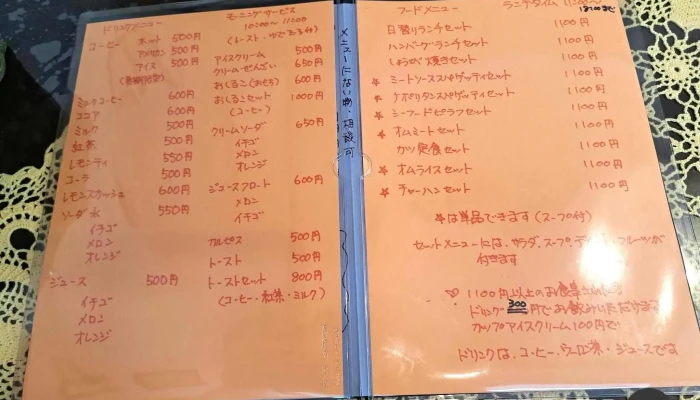 ドリンクメニュー
コーヒー ホット 500円
アメリカン 500円
アイス 500円
ミルクコーヒー 600円
ココア 600円
ミルク 500円
紅茶 500円
レモンティ 550円
コーラ 500円
レモンスカッシュ 600円
ソーダ水 550円
イチゴ
メロン
オレンジ
ジュース 500円
イチゴ
メロン
オレンジ
モーニングサービス
10:00〜11:00
(トースト・ゆでたまご付)
アイスクリーム 500円
クリームぜんざい 650円
おしるこ(おもち) 600円
おしるこセット 1000円
(コーヒー)
クリームソーダ 650円
イチゴ
メロン
オレンジ
ジュースフロート 600円
メロン
イチゴ
カルピス 500円
トースト 500円
トーストセット 800円
(コーヒー・紅茶・ミルク)
メニューにない物・相談可
フードメニュー
ランチタイム 11:00〜
まで
日替りランチセット 1100円
ハンバーグランチセット 1100円
しょうが焼きセット 1100円
☆ ミートソーススパゲッティセット 1100円
☆ ナポリタンスパゲッティセット 1100円
☆ シーフードピラフセット 1100円
☆ オムミートセット 1100円
カツ定食セット 1100円
☆ オムライスセット 1100円
☆ チャーハンセット 1100円
☆は単品できます(スープ付)
セットメニューには、サラダ、スープ、フルーツが
付きます
♡ 1100円以上のお食事された方
ドリンク300円でお飲みいただけます
カップアイスクリーム100円で
ドリンクは、コーヒー、ウーロン茶・ジュースです